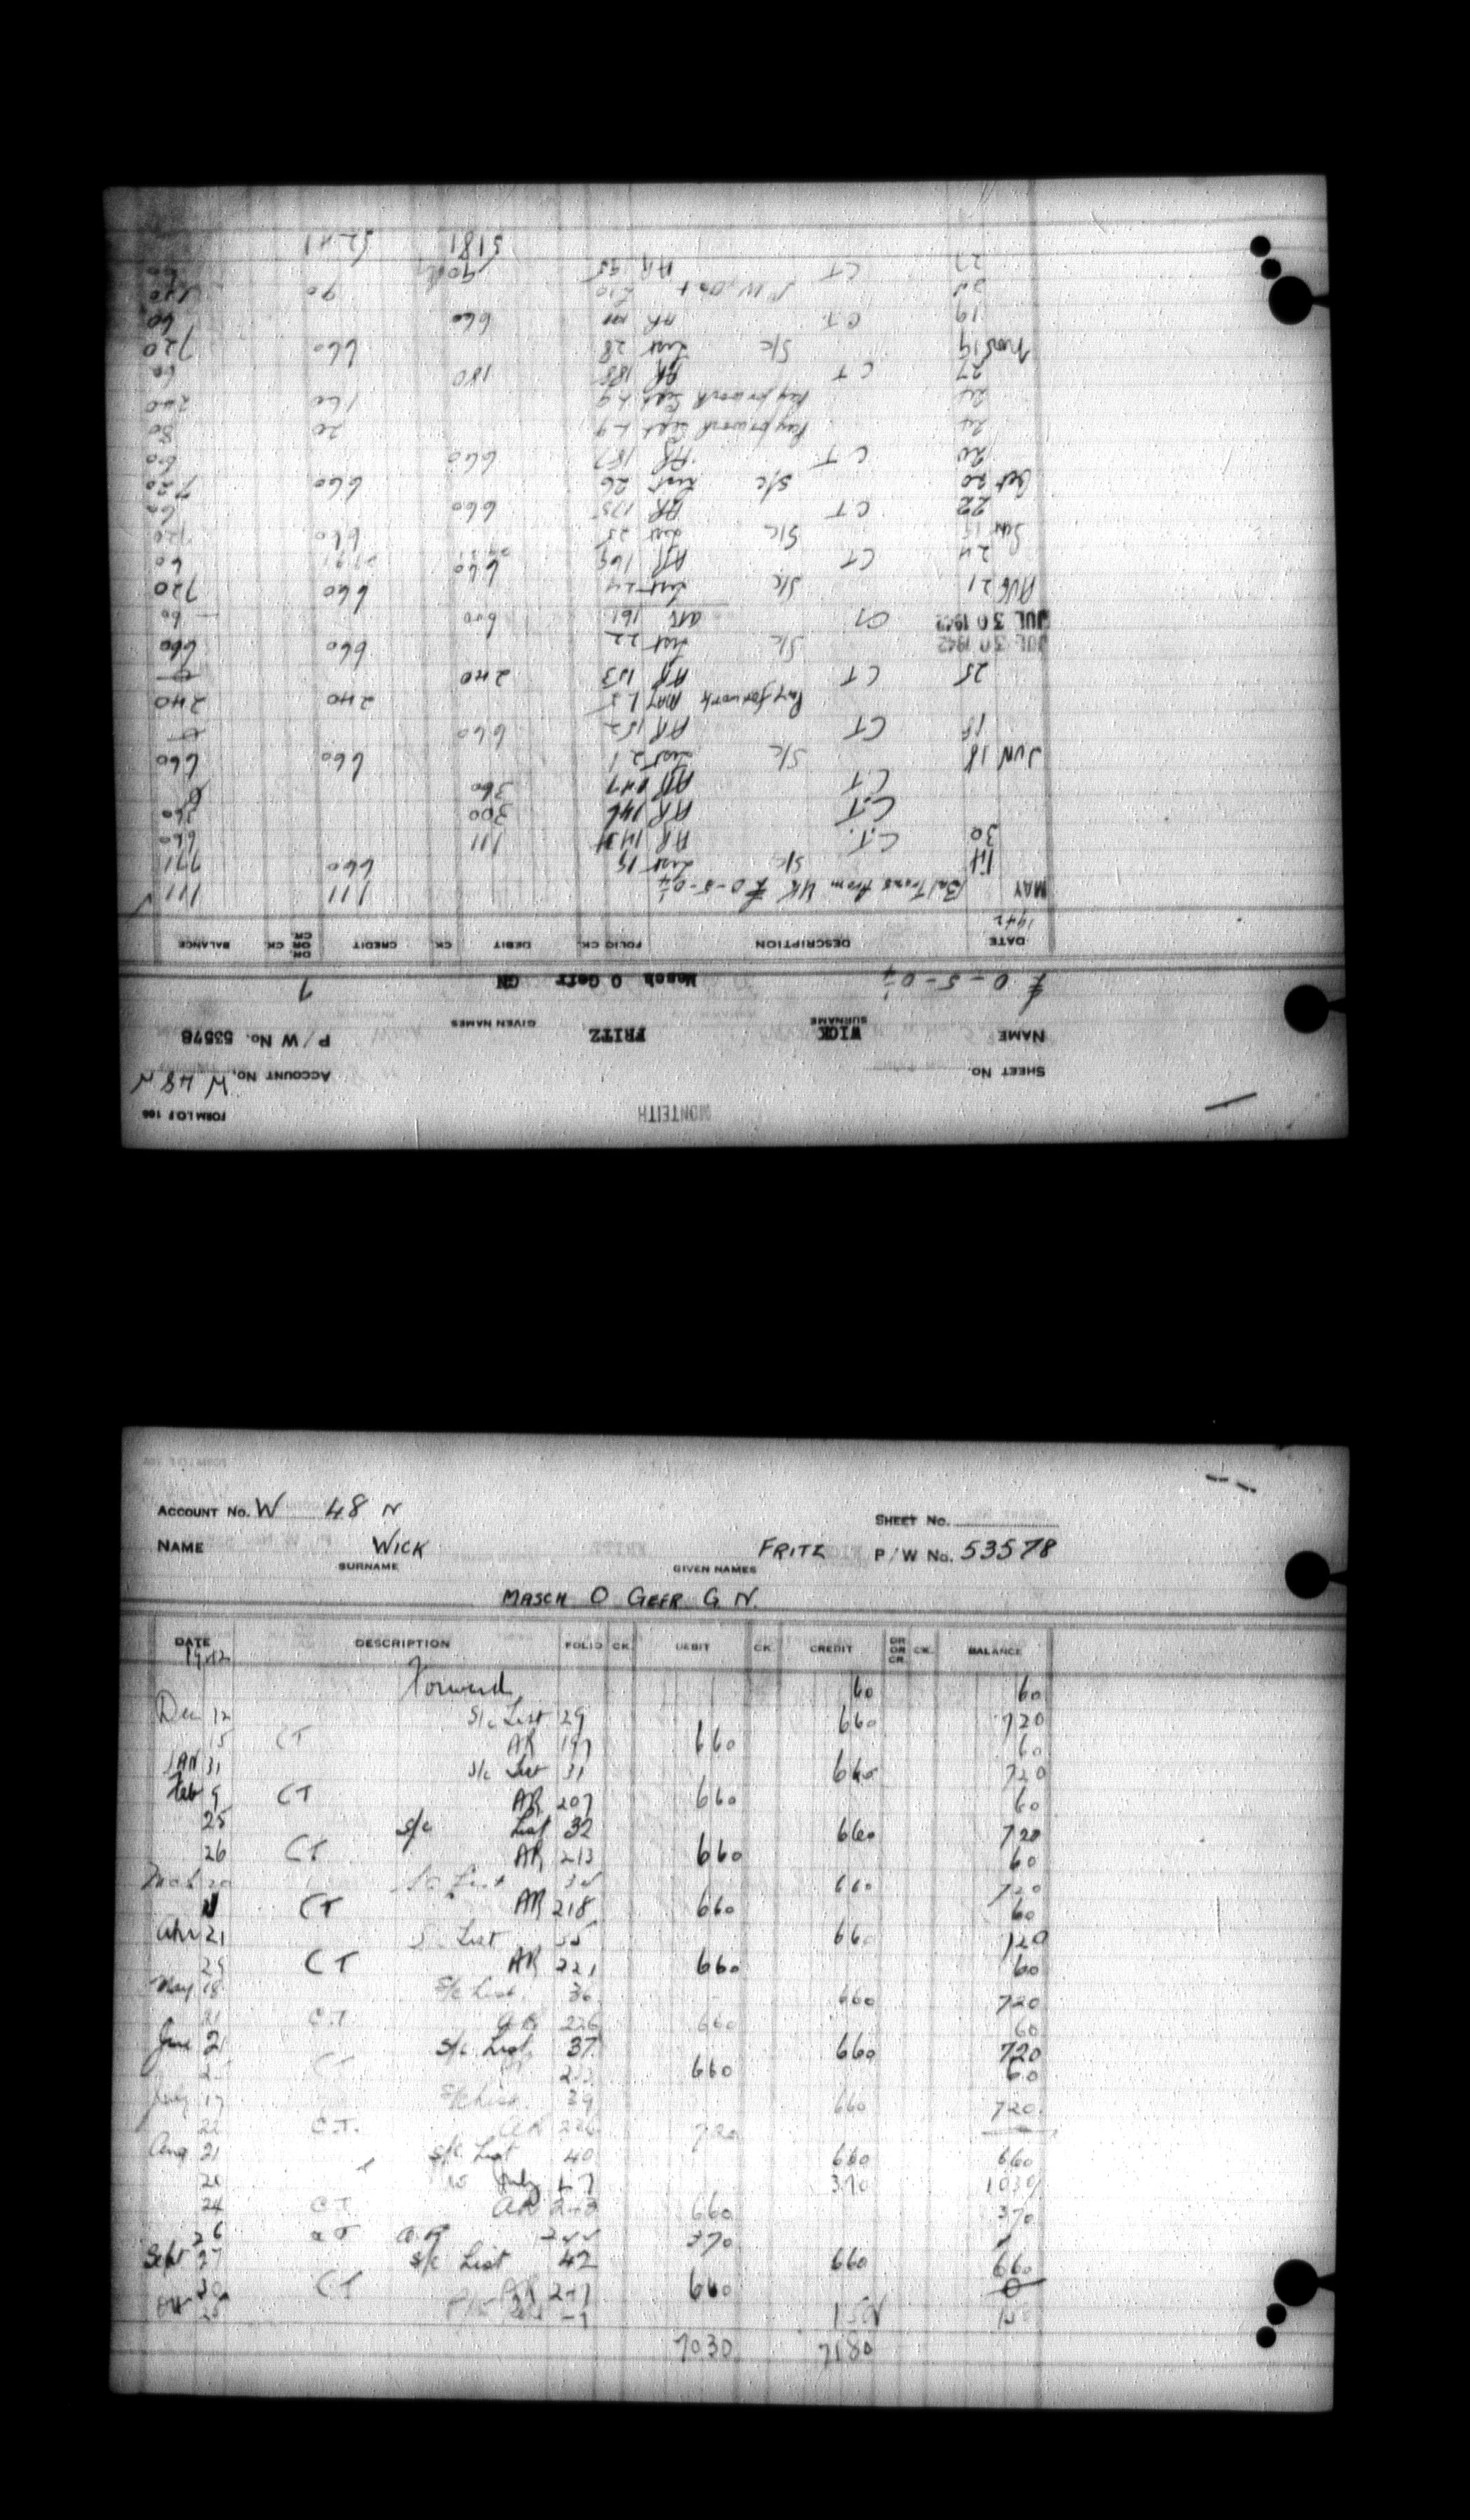 MONTEITH
FORM LOF 106
SHEET No. ACCOUNT No. W 48 N
NAME WICK FRITZ P/W No. 53578
SURNAME GIVEN NAMES
£ 0-5-0¼ Masch O Gefr GN
DATE DESCRIPTION FOLIO CK. DEBIT CK. CREDIT DR. OR CR. CK. BALANCE
1942
MAY Bal Trans from UK £0-5-0¼ 111 111
S/c List 19 660 771
30 C.T. AR 111 660
C.T. AR 146 300 360
C.T. AR 147 360
JUN 18 S/c List 21 660 660
18 CT AR 152 660
Pay for work MAY 240 240
25 CT AR 153 240
JUL 30 1942 S/c List 22 660 660
JUL 30 1942 CT AR 161 600 60
AUG 21 S/c List 24 660 720
24 CT AR 169 660 60
15 S/c List 25 660 720
22 CT AR 175 660 60
Oct 20 S/c List 26 660 720
20 CT AR 187 660 60
24 Pay for work Sept 20 80
24 Pay for work Sept 160 240
27 CT AR 188 180 60
Nov 19 S/c List 28 660 720
19 C.T. AR 660 60
90
27 CT AR 95 90
5181 5241
ACCOUNT No. W 48 N SHEET No.
NAME WICK FRITZ P/W No. 53578
SURNAME GIVEN NAMES
MASCH O GEFR G N.
DATE DESCRIPTION FOLIO CK. DEBIT CK. CREDIT DR. OR CR. CK. BALANCE
1942
Forward 60 60
Dec 12 S/c List 29 660 720
15 CT AR 197 660 60
JAN 31 S/c List 31 660 720
Feb 9 CT AR 207 660 60
25 S/c List 32 660 720
26 CT AR 213 660 60
20 List 660 720
CT AR 218 660 60
Apr 21 List 35 660 720
29 CT AR 221 660 60
May 18 S/c List 36 660 720
21 C.T. AR 226 660 60
June 21 S/c List 37 660 720
CT 660 60
July 17 S/c List 39 660 720
22 C.T. AR 720
Aug 21 S/c List 40 660 660
July 370 1030
24 C.T. AR 660 370
26 CT AR 370
Sept 27 S/c List 42 660 660
30 CT AR 660 0
Oct 25 150 150
7030 7180